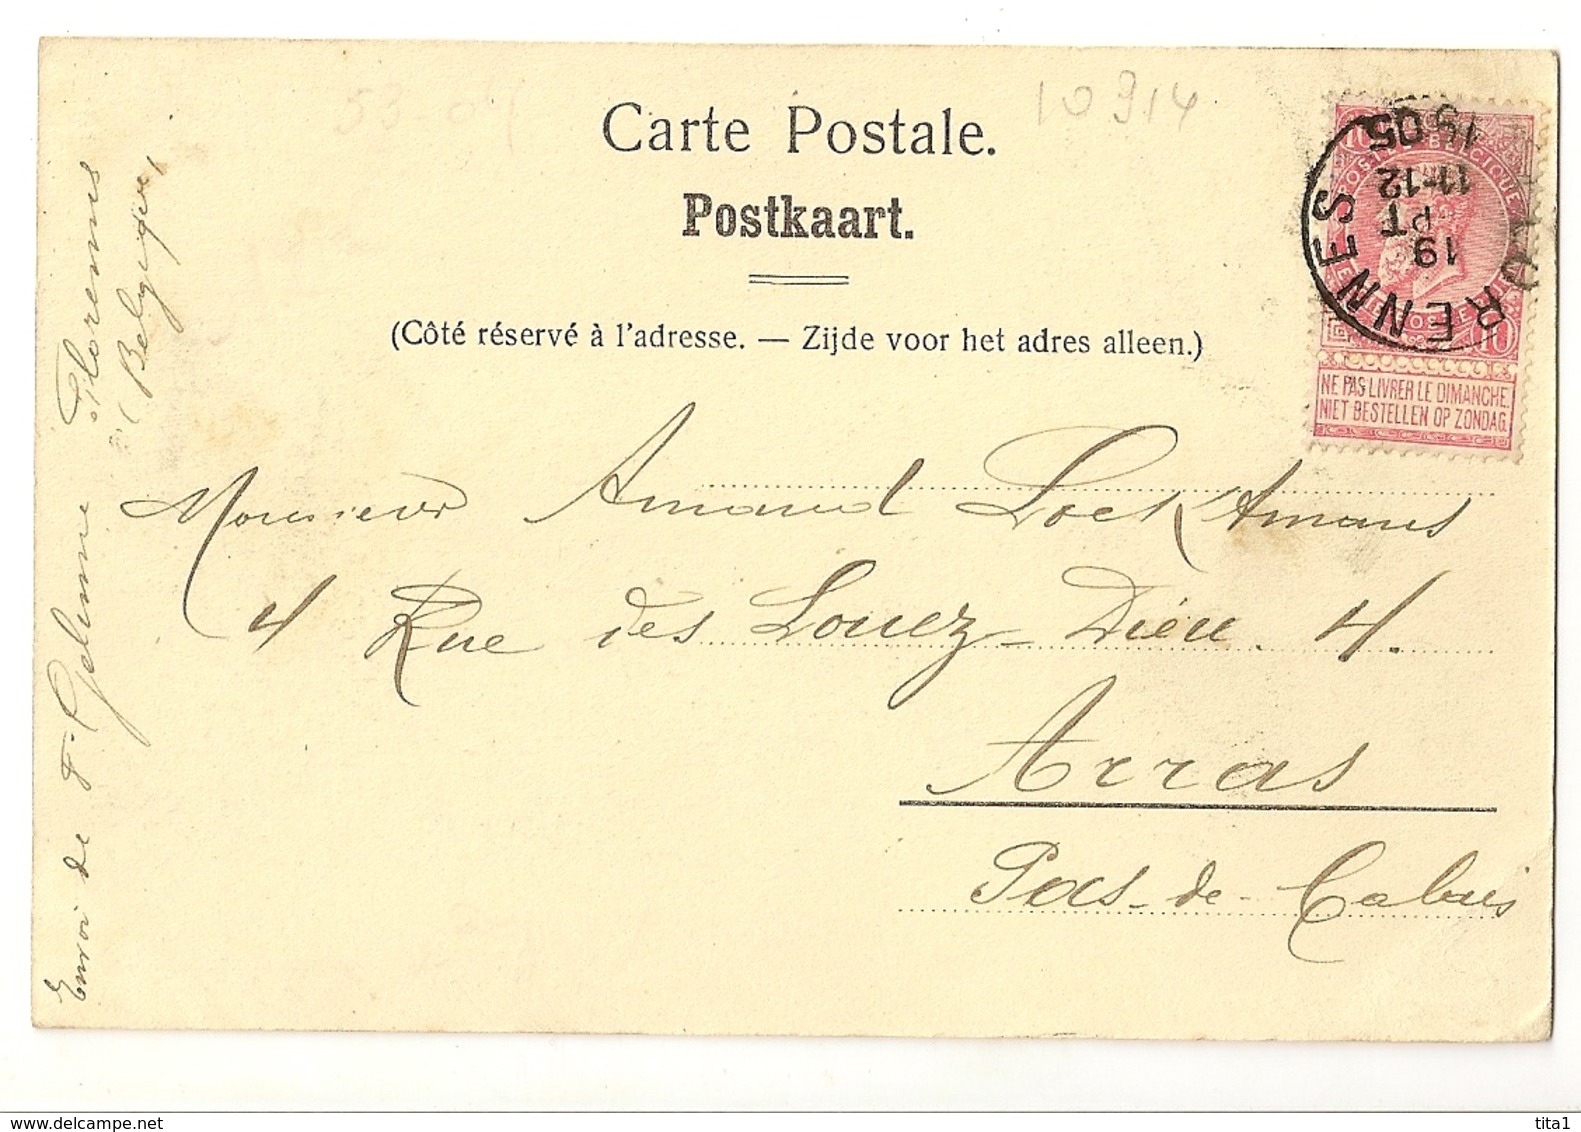 53-04
10914
Carte Postale.
Postkaart.
(Côté réservé à l'adresse. — Zijde voor het adres alleen.)
POSTES BELGIQUE
10 10
NE PAS LIVRER LE DIMANCHE.
NIET BESTELLEN OP ZONDAG.
FLORENNES
19
PT
11-12
1905
Monsieur Armand Locktmans
4 Rue des Louez-Dieu 4.
Arras
Pas-de-Calais
Envoi de F. Gelinne Florennes
(Belgique)
tita1